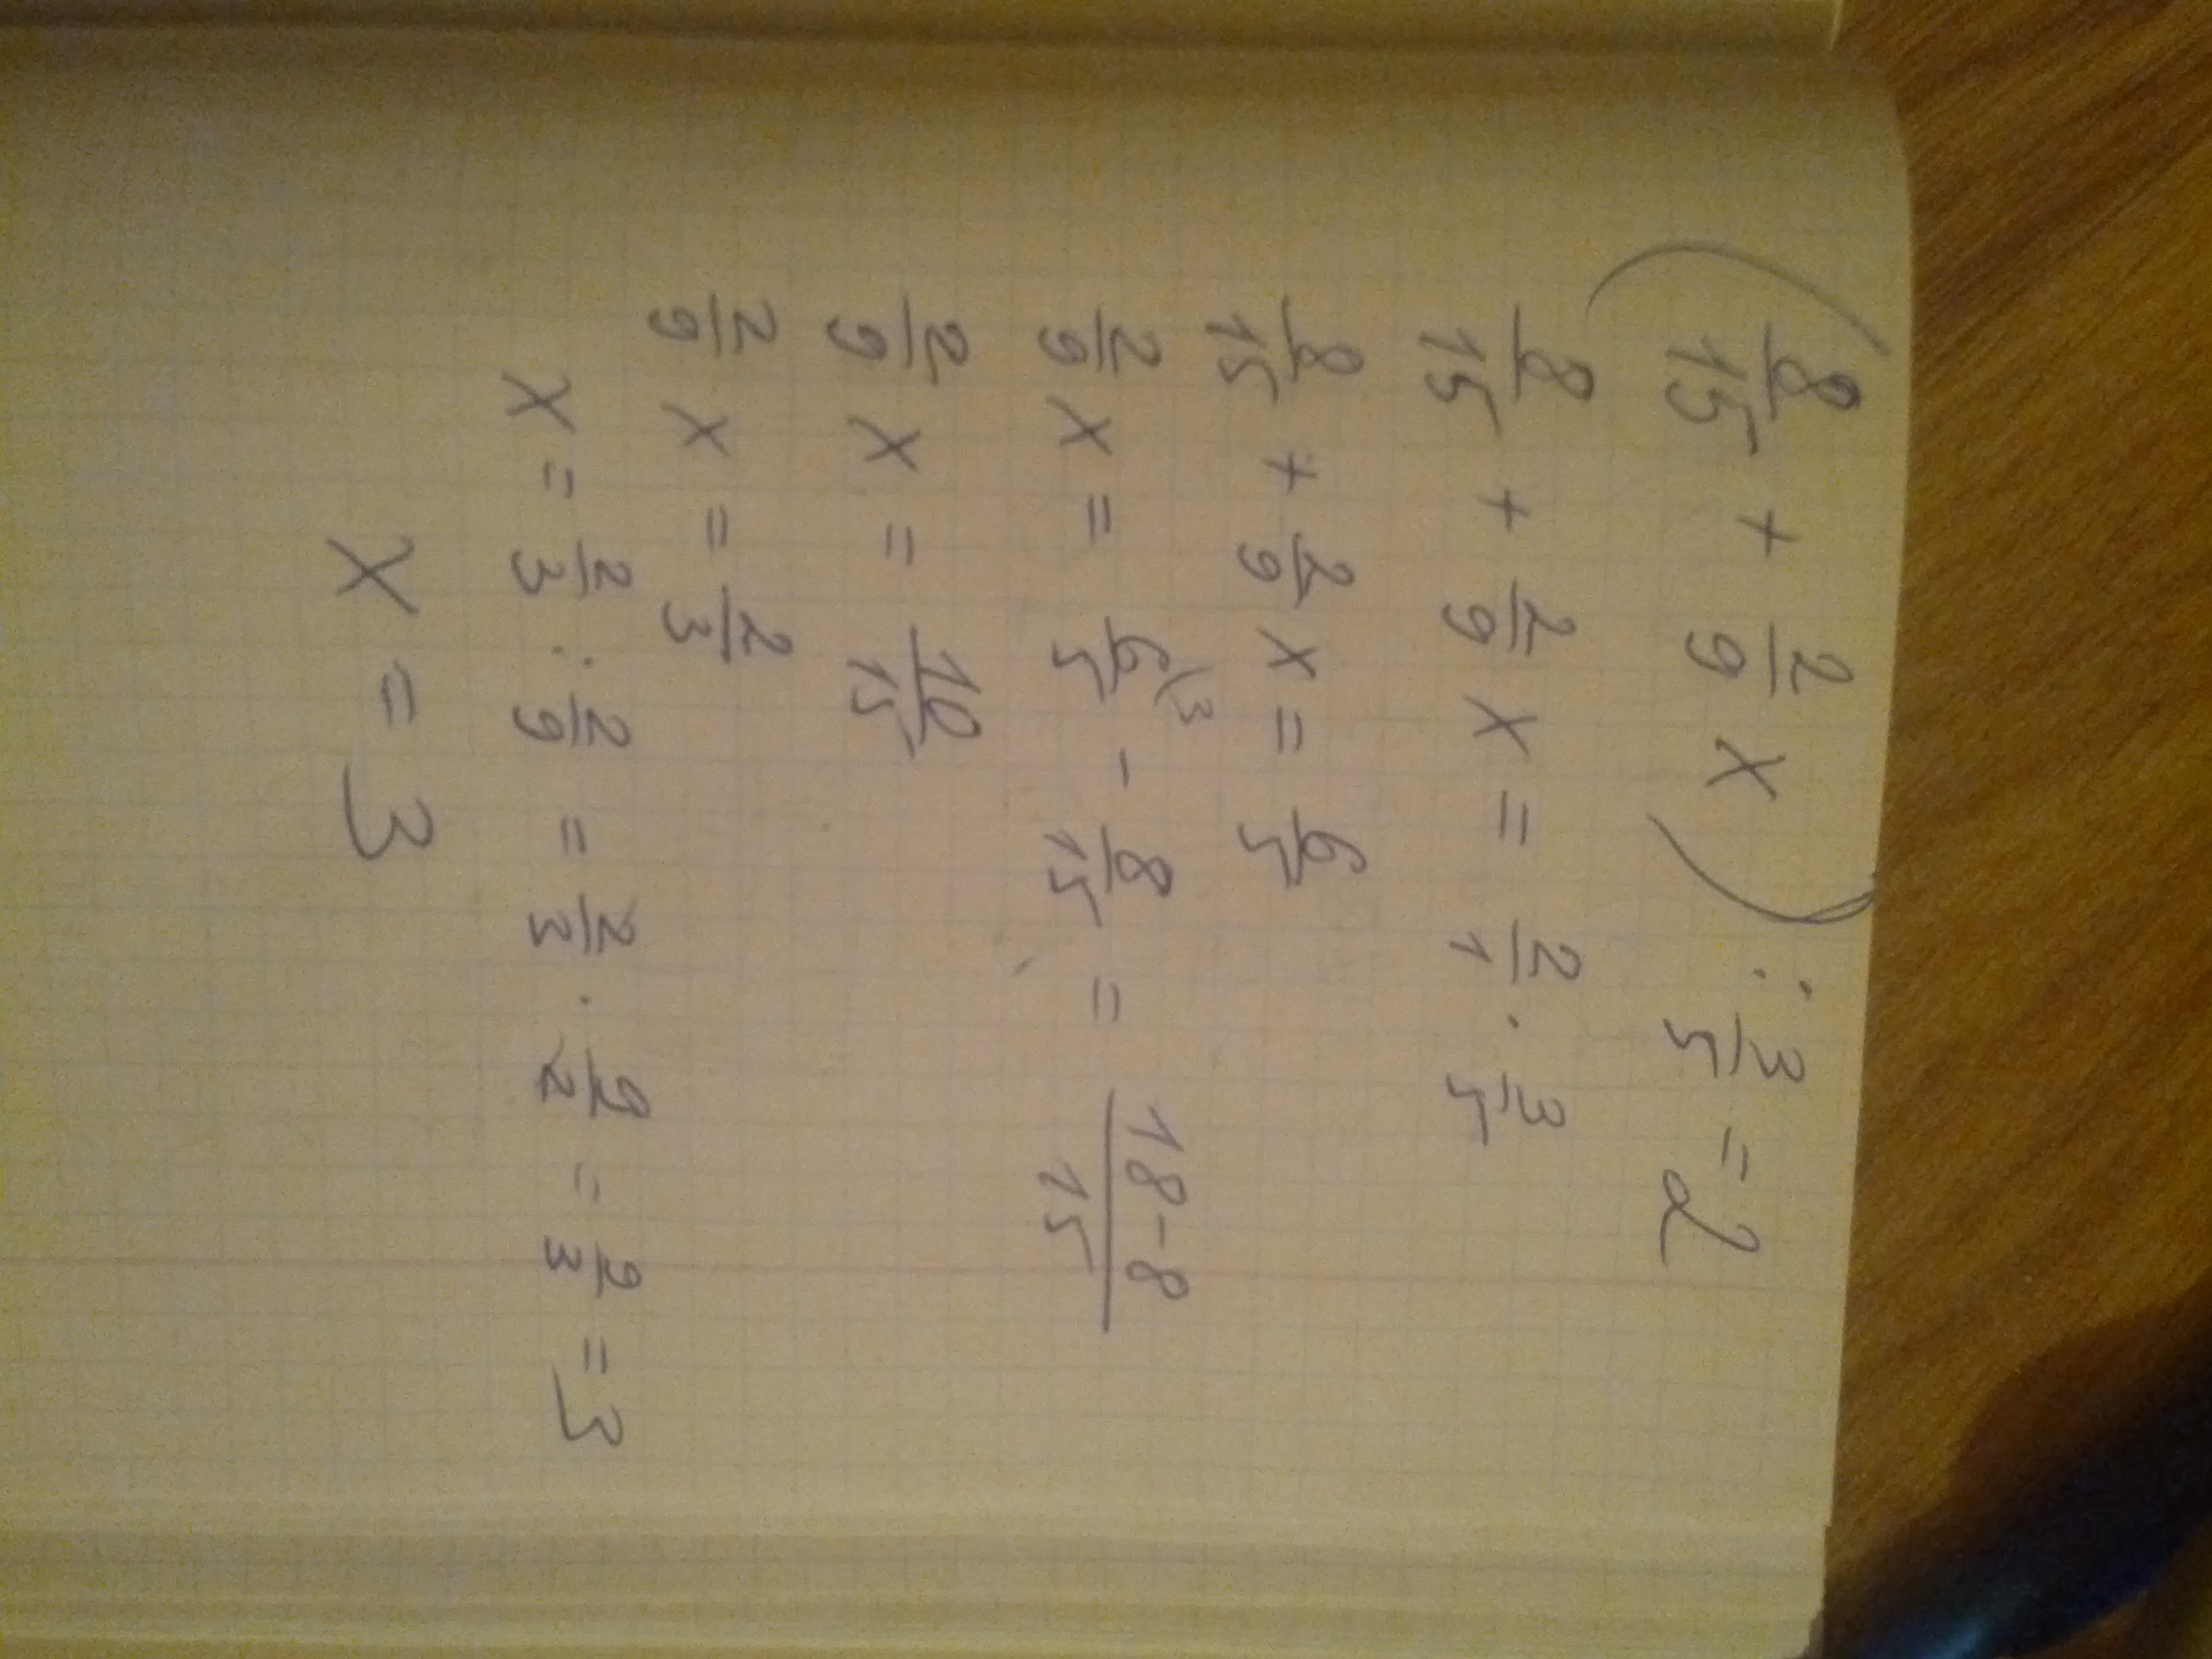 (8/15 + 2/9 x) : 3/5 = 2
8/15 + 2/9 x = 2/1 · 3/5
8/15 + 2/9 x = 6/5
2/9 x = 6/5 \3 - 8/15 = 18-8/15
2/9 x = 10/15
2/9 x = 2/3
x = 2/3 : 2/9 = 2/3 · 9/2 = 9/3 = 3
x = 3